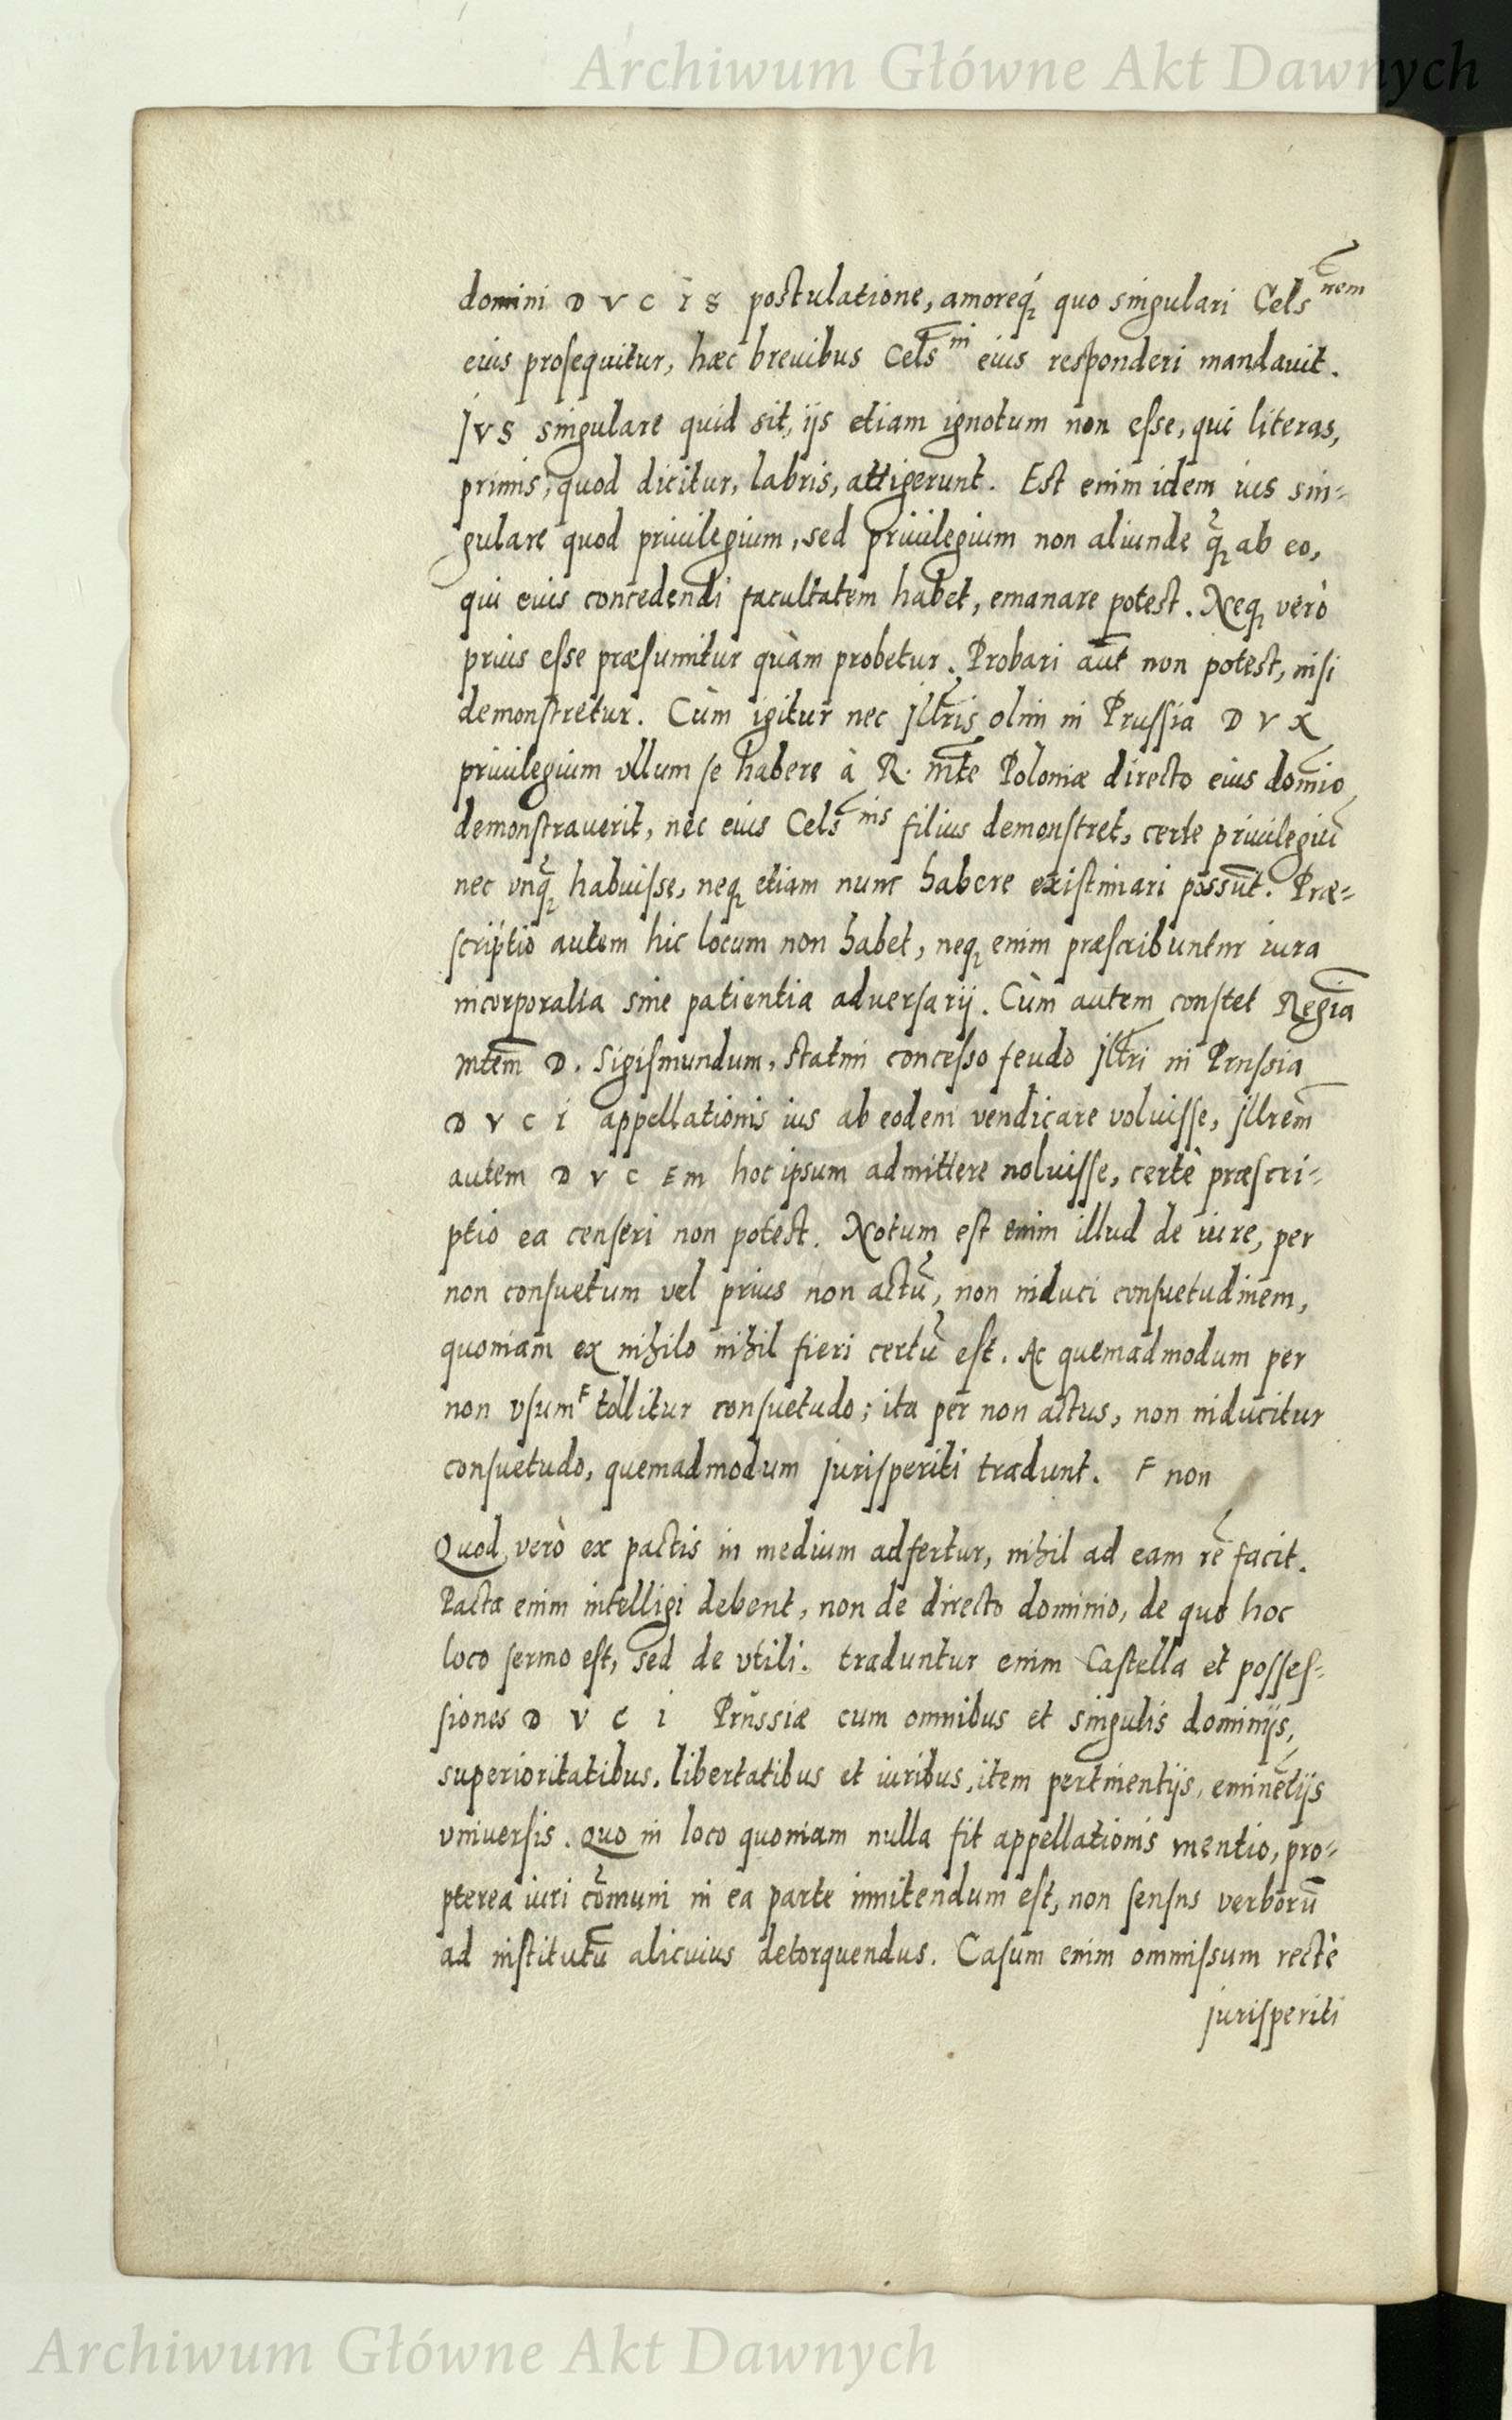 Archiwum Główne Akt Dawnych
domini DVCIS postulatione, amoreq́; quo singulari Cels^nem
eius prosequitur, hæc breuibus Cels^ni eius responderi mandauit.
JVS singulare quid sit, ijs etiam ignotum non esse, qui literas,
primis, quod dicitur, labris, attigerunt. Est enim idem ius sin-
gulare quod priuilegium, sed priuilegium non aliunde q̃; ab eo,
qui eius concedendi facultatem habet, emanare potest. Neq; verò
prius esse præsumitur quàm probetur. Probari aūt non potest, nisi
demonstretur. Cùm igitur nec jll̃tris olim in Prussia DVX
priuilegium vllum se habere à R. M̃te Poloniæ directo eius dom̃io
demonstrauerit, nec eius Cels^nis filius demonstret, certe priuilegiũ
nec vnq̃; habuisse, neq; etiam nunc habere existimari possũt. Præ-
scriptio autem hic locum non habet, neq; enim præscribuntur iura
incorporalia sine patientia aduersarij. Cùm autem constet Regiã
mtem̃ D. Sigismundum, statim concesso feudo jll̃tri in Prussia
DVCI appellationis ius ab eodem vendicare voluisse, jllrem̃
autem DVCEM hoc ipsum admittere noluisse, certè præscri-
ptio ea censeri non potest. Notum est enim illud de iure, per
non consuetum vel prius non actũ, non induci consuetudinem,
quoniam ex nihilo nihil fieri certũ est. Ac quemadmodum per
non vsum ꜰ tollitur consuetudo; ita per non actus, non inducitur
consuetudo, quemadmodum jurisperiti tradunt. ꜰ non
Quod verò ex pactis in medium adfertur, nihil ad eam rẽ facit.
Pacta enim intelligi debent, non de directo dominio, de quo hoc
loco sermo est, sed de vtili. traduntur enim Castella et posses-
siones DVCI Prussiæ cum omnibus et singulis dominijs,
superioritatibus, libertatibus et iuribus, item pertinentijs, eminẽtijs
vniuersis. Quo in loco quoniam nulla fit appellationis mentio, pro-
pterea iuri cõmuni in ea parte innitendum est, non sensus verborũ
ad institutũ alicuius detorquendus. Casum enim ommissum rectè
jurisperiti
Archiwum Główne Akt Dawnych